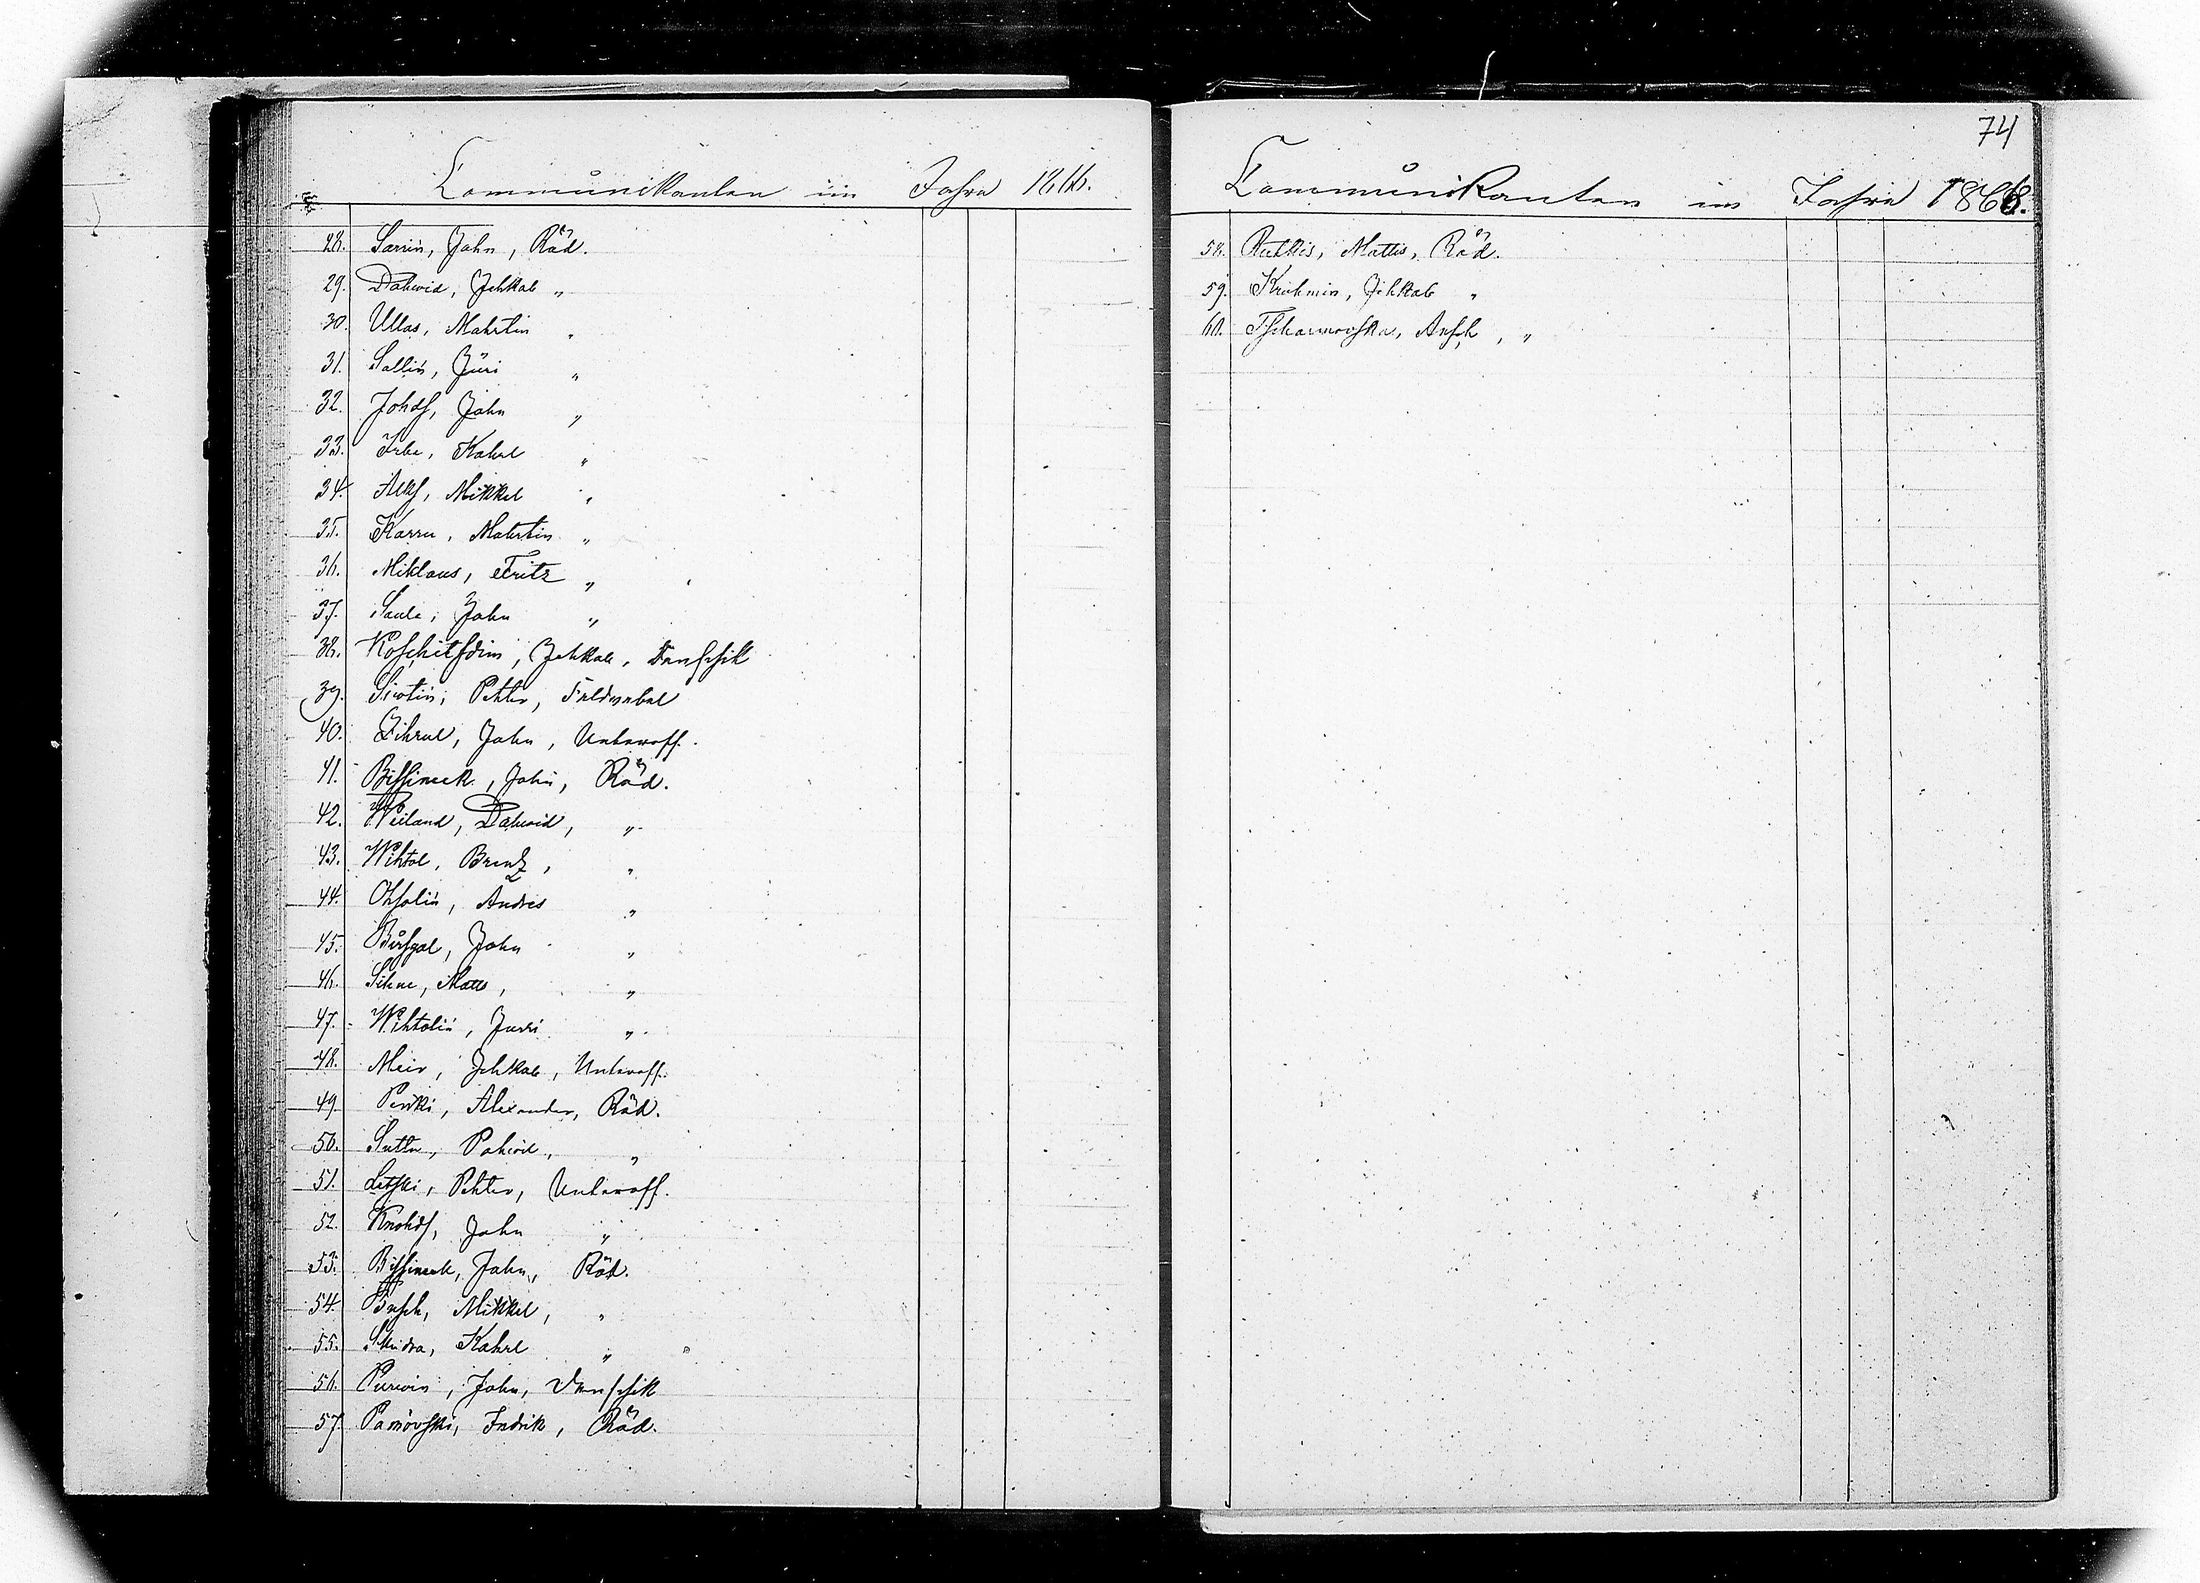 Communikanten im Jahre 1866.
28. Sarrin, Jahn, Räd.
29. Dahwid, Jehkab "
30. Ullas, Mahrtin "
31. Sallin, Jüri "
32. Johds, Jahn "
33. Irbe, Kahrl "
34. Alks, Mikkel "
35. Karru, Mahrtin "
36. Miklaus, Fritz "
37. Saule, Jahn "
38. Jehkab, Denschik
39. Siwtin, Pehter, Feldwebel
40. Zihrul, Jahn, Unteroff.
41. Bissineek, Jahn, Räd.
42. Weiland, Dahwid, "
43. Wihtol, Brenz, "
44. Ohsolin, Andres "
45. Birsgal, Jahn "
46. Sihne, Matts, "
47. Wihtolin, Jurri "
48. Meir, Jehkab, Unteroff.
49. Penki, Alexander, Räd.
50. Sutta, Pahwil, "
51. Letski, Pehter, Unteroff.
52. Knohds, Jahn "
53. Bissineek, Jahn, Räd.
54. Busch, Mikkel, "
55. Skudra, Kahrl "
56. Purwin, Jahn, Denschik
57. Indrik, Räd.
74
Communikanten im Jahre 1866.
58. Rutkis, Mattis, Räd.
59. Kruhmin, Jehkab "
60. Ansch, "